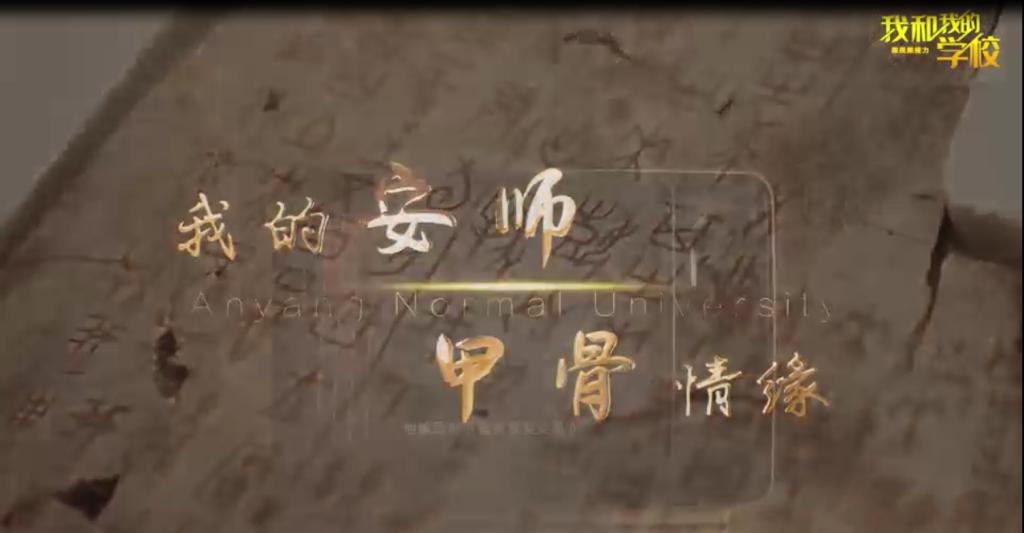 我和我的
学校
我的安师
Anyang Normal University
甲骨情缘